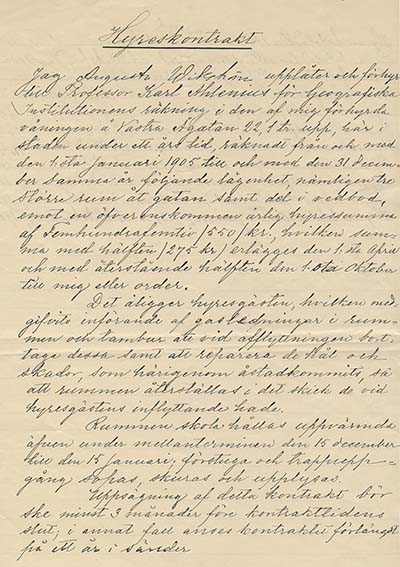 Hyreskontrakt
Jag Augusta Wikholm upplåter och förhyr
Herr Professor Karl Ahlenius för Geografiska
Institutionens räkning i den af mig förhyrda
våningen å Västra Ågatan 22, 1 tr. upp, här i
staden under ett års tid, räknadt från och med
den 1:sta Januari 1905 till och med den 31 decem-
ber samma år följande lägenhet, nämligen tre
större rum åt gatan samt del i vedbod,
emot en öfverenskommen årlig hyressumma
af Femhundrafemtio (550) kr., hvilken sum-
ma med hälften (275 kr) erlägges den 1:sta April
och med återstående hälften den 1:sta Oktober
till mig eller order.
Det åligger hyresgästen, hvilken med-
gifvits införande af gasledningar i rum-
men och tambur att vid afflyttningen bort-
taga dessa samt att reparera de hål och
skador, som härigenom åstadkommits, så
att rummen återställas i det skick de vid
hyresgästens inflyttande hade.
Rummen skola hållas uppvärmda
äfven under mellanterminen den 15 december
till den 15 Januari; förstuga och trappupp-
gång sopas, skuras och upplysas.
Uppsägning af detta kontrakt bör
ske minst 3 månader före kontraktstidens
slut, i annat fall anses kontraktet förlängdt
på ett år i sänder